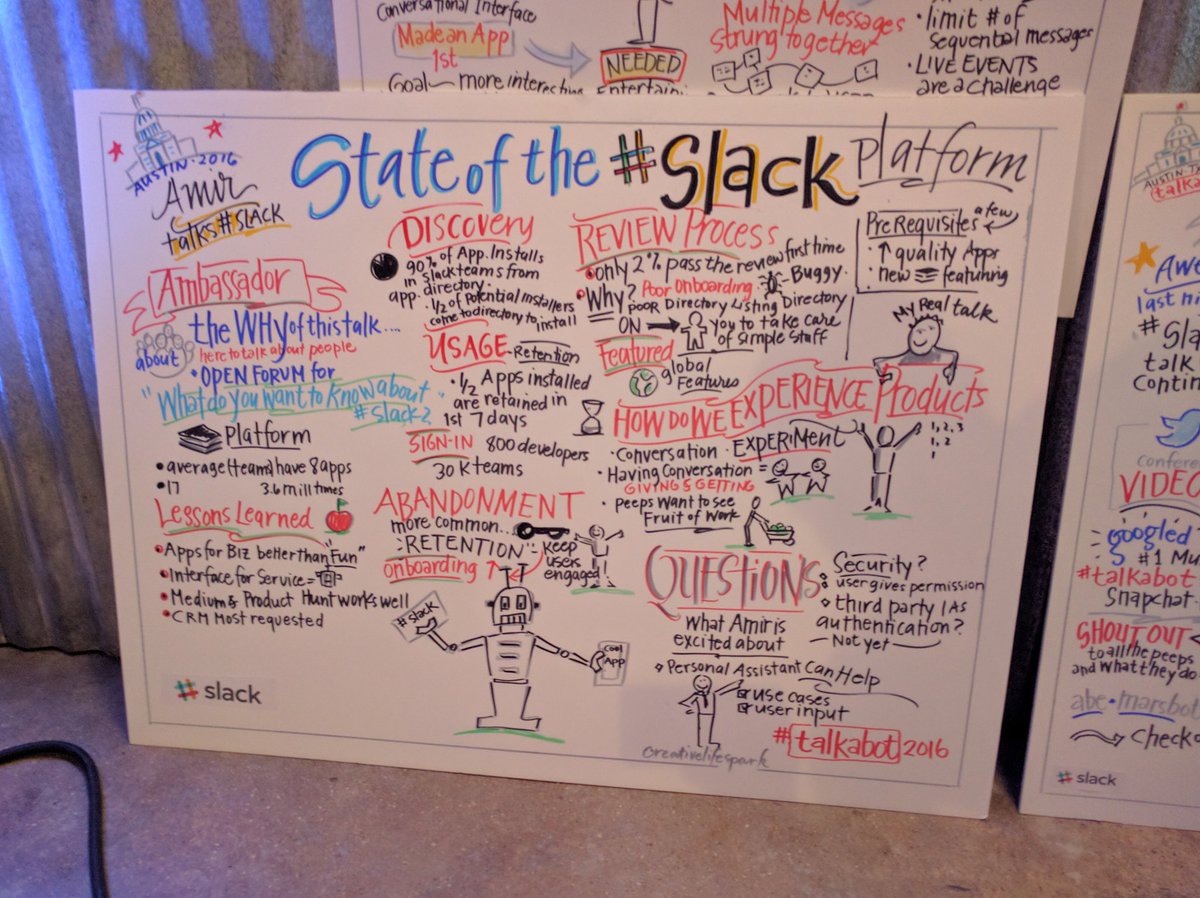 Conversational Interface
Made an App
1st
Goal — more interesting
NEEDED
Multiple Messages
strung together
• limit # of
sequential messages
• LIVE EVENTS
are a challenge
AUSTIN • 2016
Amir
talks #SLACK
State of the #Slack Platform
Ambassador
the WHY of this talk...
about
here to talk about people
• OPEN FORUM for
"What do you want to know about
#Slack?
Platform
• average (team) have 8 apps
• 17 3.6 mill times
Lessons Learned
• Apps for Biz better than "Fun"
• Interface for Service =
• Medium & Product Hunt works well
• CRM Most requested
#slack
DISCOVERY
90% of App. Installs
in Slack teams from
app. directory.
• 1/2 of Potential installers
come to directory to install
USAGE - Retention
• 1/2 Apps installed
are retained in
1st 7 days
SIGN-IN 800 developers
30 K teams
ABANDONMENT
more common...
RETENTION
onboarding
keep
users
engaged
#slack
COOL
App
REVIEW PROCESS
• only 2% pass the review first time
• Why? Poor Onboarding Buggy.
poor Directory Listing Directory
ON
you to take care
of simple stuff
Featured
global
Features
PreRequisites a few
• ↑ quality Apps
• new featuring
My Real talk
HOW DO WE EXPERIENCE Products
• Conversation • EXPERIMENT
• Having Conversation =
GIVING & GETTING
• peeps want to see
Fruit of Work
1, 2, 3
1, 2
QUESTIONS
What Amir is
excited about
Security?
user gives permission
third party IAs
authentication?
— Not yet —
Personal Assistant Can Help
use cases
user input
creativelifespark
#talkabot 2016
AUSTIN
last
talk
VIDEO
googled
#talkabot
Snapchat.
SHOUT OUT
to all the peeps
and what they do
abe • marsbot
#slack